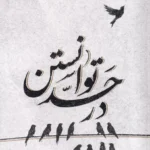 در حد توانستن